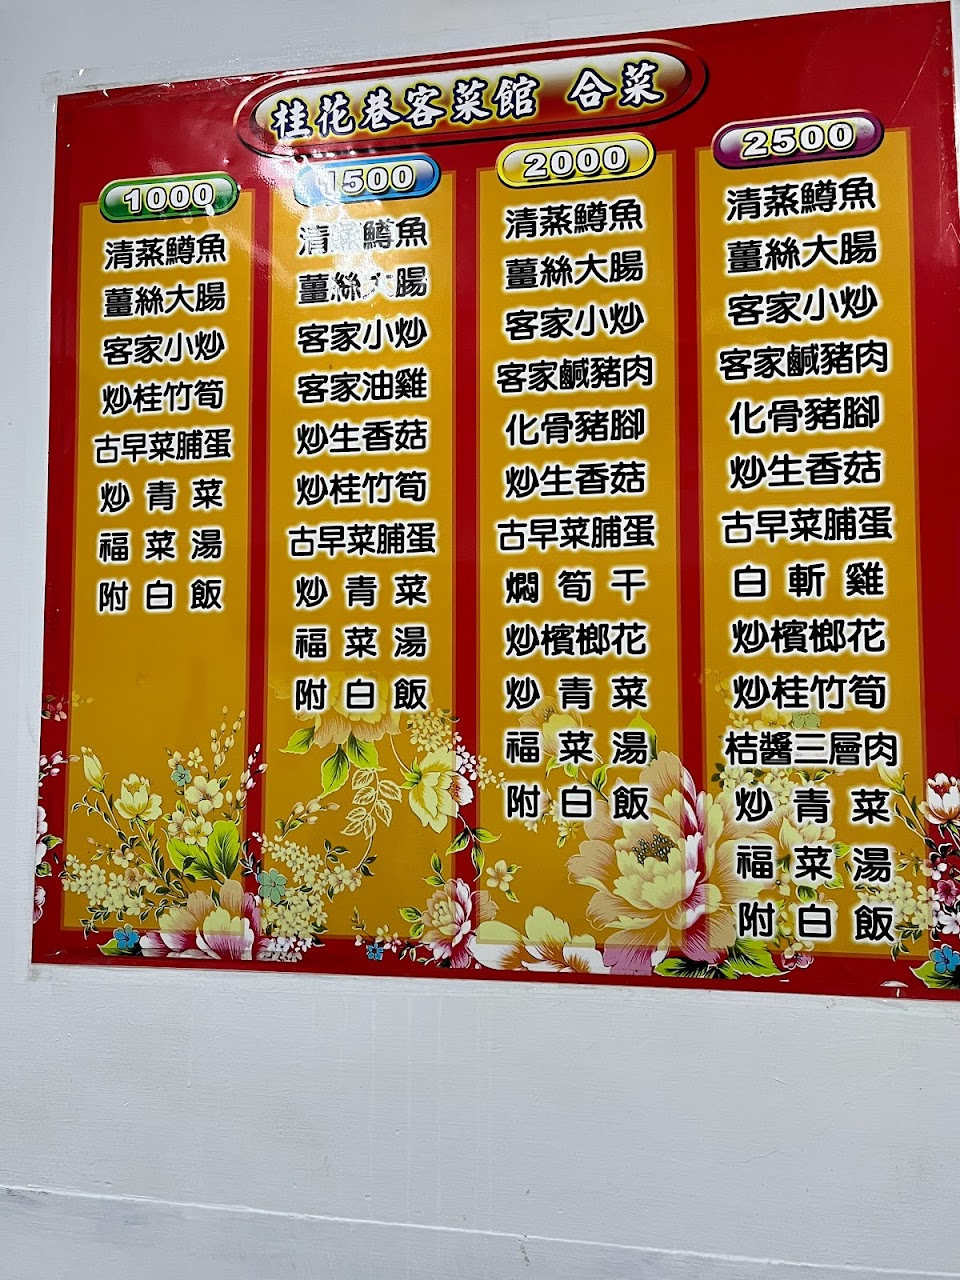 桂花巷客菜館 合菜
1000
清蒸鱒魚
薑絲大腸
客家小炒
炒桂竹筍
古早菜脯蛋
炒青菜
福菜湯
附白飯
1500
清蒸鱒魚
薑絲大腸
客家小炒
客家油雞
炒生香菇
炒桂竹筍
古早菜脯蛋
炒青菜
福菜湯
附白飯
2000
清蒸鱒魚
薑絲大腸
客家小炒
客家鹹豬肉
化骨豬腳
炒生香菇
古早菜脯蛋
燜筍干
炒檳榔花
炒青菜
福菜湯
附白飯
2500
清蒸鱒魚
薑絲大腸
客家小炒
客家鹹豬肉
化骨豬腳
炒生香菇
古早菜脯蛋
白斬雞
炒檳榔花
炒桂竹筍
桔醬三層肉
炒青菜
福菜湯
附白飯